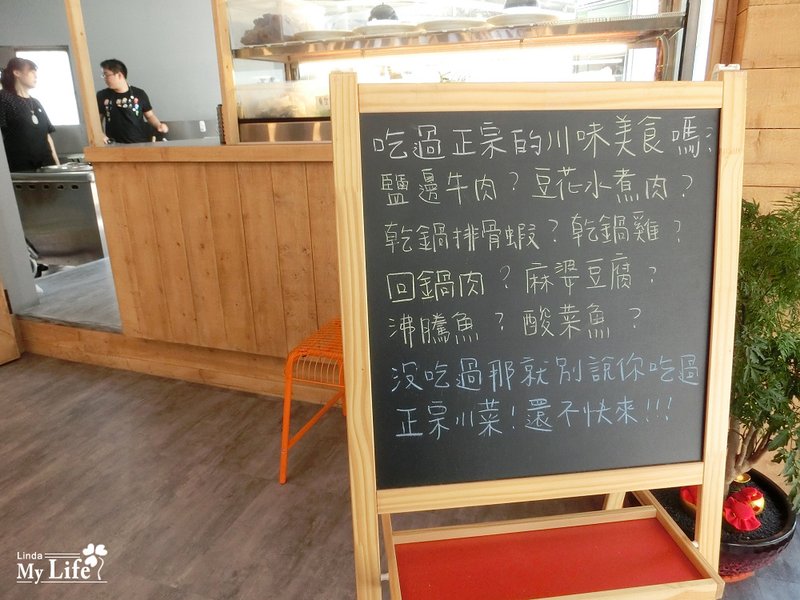 吃過正宗的川味美食嗎?
鹽邊牛肉?豆花水煮肉?
乾鍋排骨蝦?乾鍋雞?
回鍋肉?麻婆豆腐?
沸騰魚?酸菜魚?
沒吃過那就別說你吃過
正宗川菜!還不快來!!!
Linda
My Life